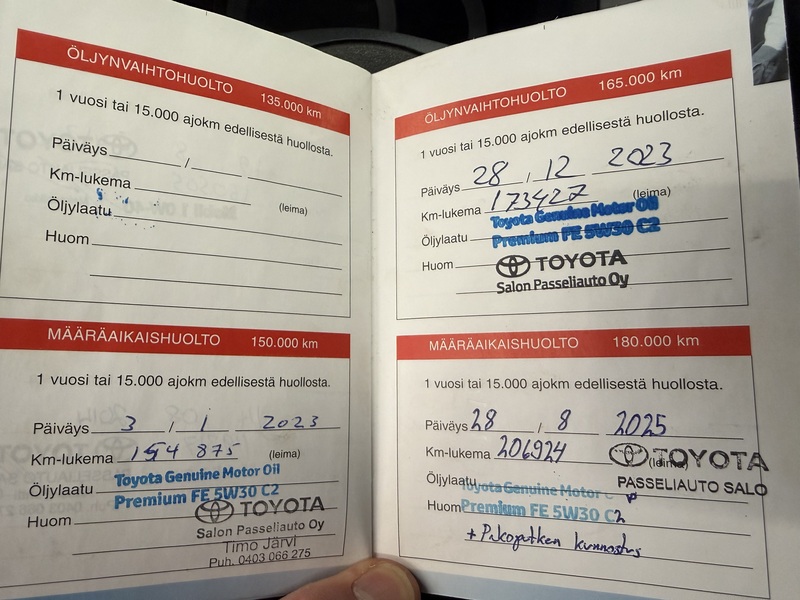 ÖLJYNVAIHTOHUOLTO 135.000 km
1 vuosi tai 15.000 ajokm edellisestä huollosta.
Päiväys / 
Km-lukema
(leima)
Öljylaatu
Huom
MÄÄRÄAIKAISHUOLTO 150.000 km
1 vuosi tai 15.000 ajokm edellisestä huollosta.
Päiväys 3 / 1 2023
Km-lukema 154 875 (leima)
Öljylaatu Toyota Genuine Motor Oil
Premium FE 5W30 C2
Huom TOYOTA
Salon Passeliauto Oy
Timo Järvi
Puh. 0403 066 275
ÖLJYNVAIHTOHUOLTO 165.000 km
1 vuosi tai 15.000 ajokm edellisestä huollosta.
Päiväys 28 / 12 2023
Km-lukema 173427 (leima)
Toyota Genuine Motor Oil
Öljylaatu Premium FE 5W30 C2
Huom TOYOTA
Salon Passeliauto Oy
MÄÄRÄAIKAISHUOLTO 180.000 km
1 vuosi tai 15.000 ajokm edellisestä huollosta.
Päiväys 28 / 8 2025
Km-lukema 206924 (leima) TOYOTA
PASSELIAUTO SALO
Öljylaatu Toyota Genuine Motor
Huom Premium FE 5W30 C2
+ Pakoputken kunnostus